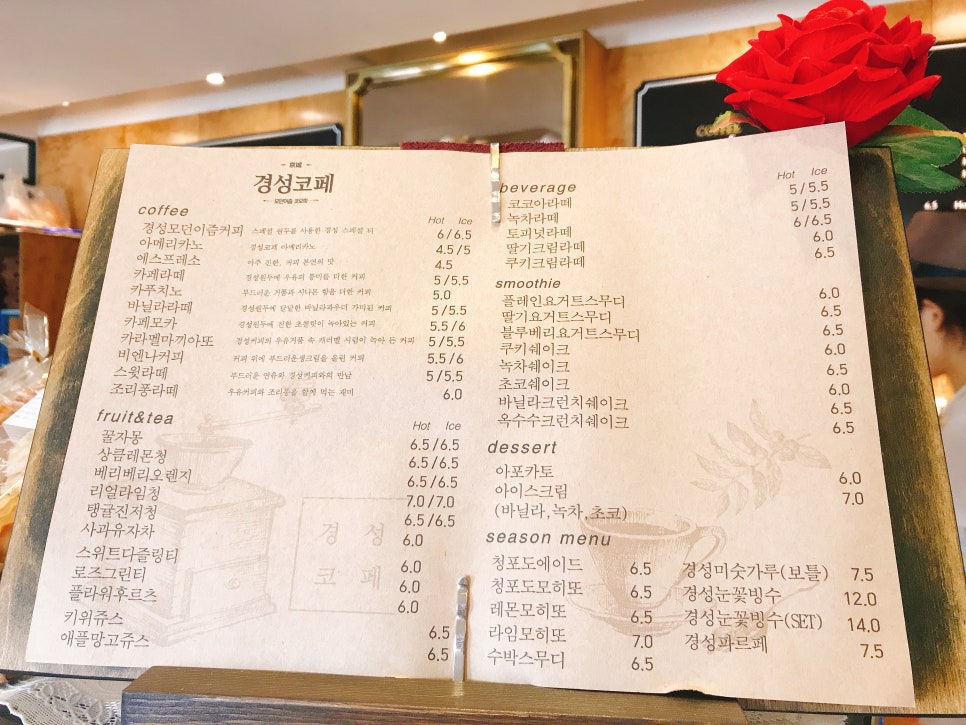 京城
경성코페
coffee
Hot Ice
경성모던이즘커피 스페셜 원두를 사용한 경성 스페셜 티 6/6.5
아메리카노 경성코페 아메리카노 4.5/5
에스프레소 아주 진한, 커피 본연의 맛 4.5
카페라떼 경성원두에 우유의 풍미를 더한 커피 5/5.5
카푸치노 부드러운 거품과 시나몬 향을 더한 커피 5.0
바닐라라떼 경성원두에 달달한 바닐라파우더 가미된 커피 5/5.5
카페모카 경성원두에 진한 초콜릿이 녹아있는 커피 5.5/6
카라멜마끼아또 경성커피의 우유거품 속 캐러멜 시럽이 녹아 든 커피 5/5.5
비엔나커피 커피 위에 부드러운생크림을 올린 커피 5.5/6
스윗라떼 부드러운 연유와 경성커피와의 만남 5/5.5
조리퐁라떼 우유커피와 조리퐁을 함께 먹는 재미 6.0
fruit&tea
Hot Ice
꿀자몽 6.5/6.5
상큼레몬청 6.5/6.5
베리베리오렌지 6.5/6.5
리얼라임청 7.0/7.0
탱귤진저청 6.5/6.5
사과유자차 6.0
스위트다즐링티 6.0
로즈그린티 6.0
플라워후르츠 6.0
키위쥬스 6.5
애플망고쥬스 6.5
경성
코페
beverage
Hot Ice
코코아라떼 5/5.5
녹차라떼 5/5.5
토피넛라떼 6/6.5
딸기크림라떼 6.0
쿠키크림라떼 6.5
smoothie
플레인요거트스무디 6.0
딸기요거트스무디 6.5
블루베리요거트스무디 6.5
쿠키쉐이크 6.0
녹차쉐이크 6.5
초코쉐이크 6.0
바닐라크런치쉐이크 6.5
옥수수크런치쉐이크 6.5
dessert
아포카토 6.0
아이스크림 7.0
(바닐라,녹차,초코)
season menu
청포도에이드 6.5
청포도모히또 6.5
레몬모히또 6.5
라임모히또 7.0
수박스무디 6.5
경성미숫가루(보틀) 7.5
경성눈꽃빙수 12.0
경성눈꽃빙수(SET) 14.0
경성파르페 7.5
COFFEE
6.5